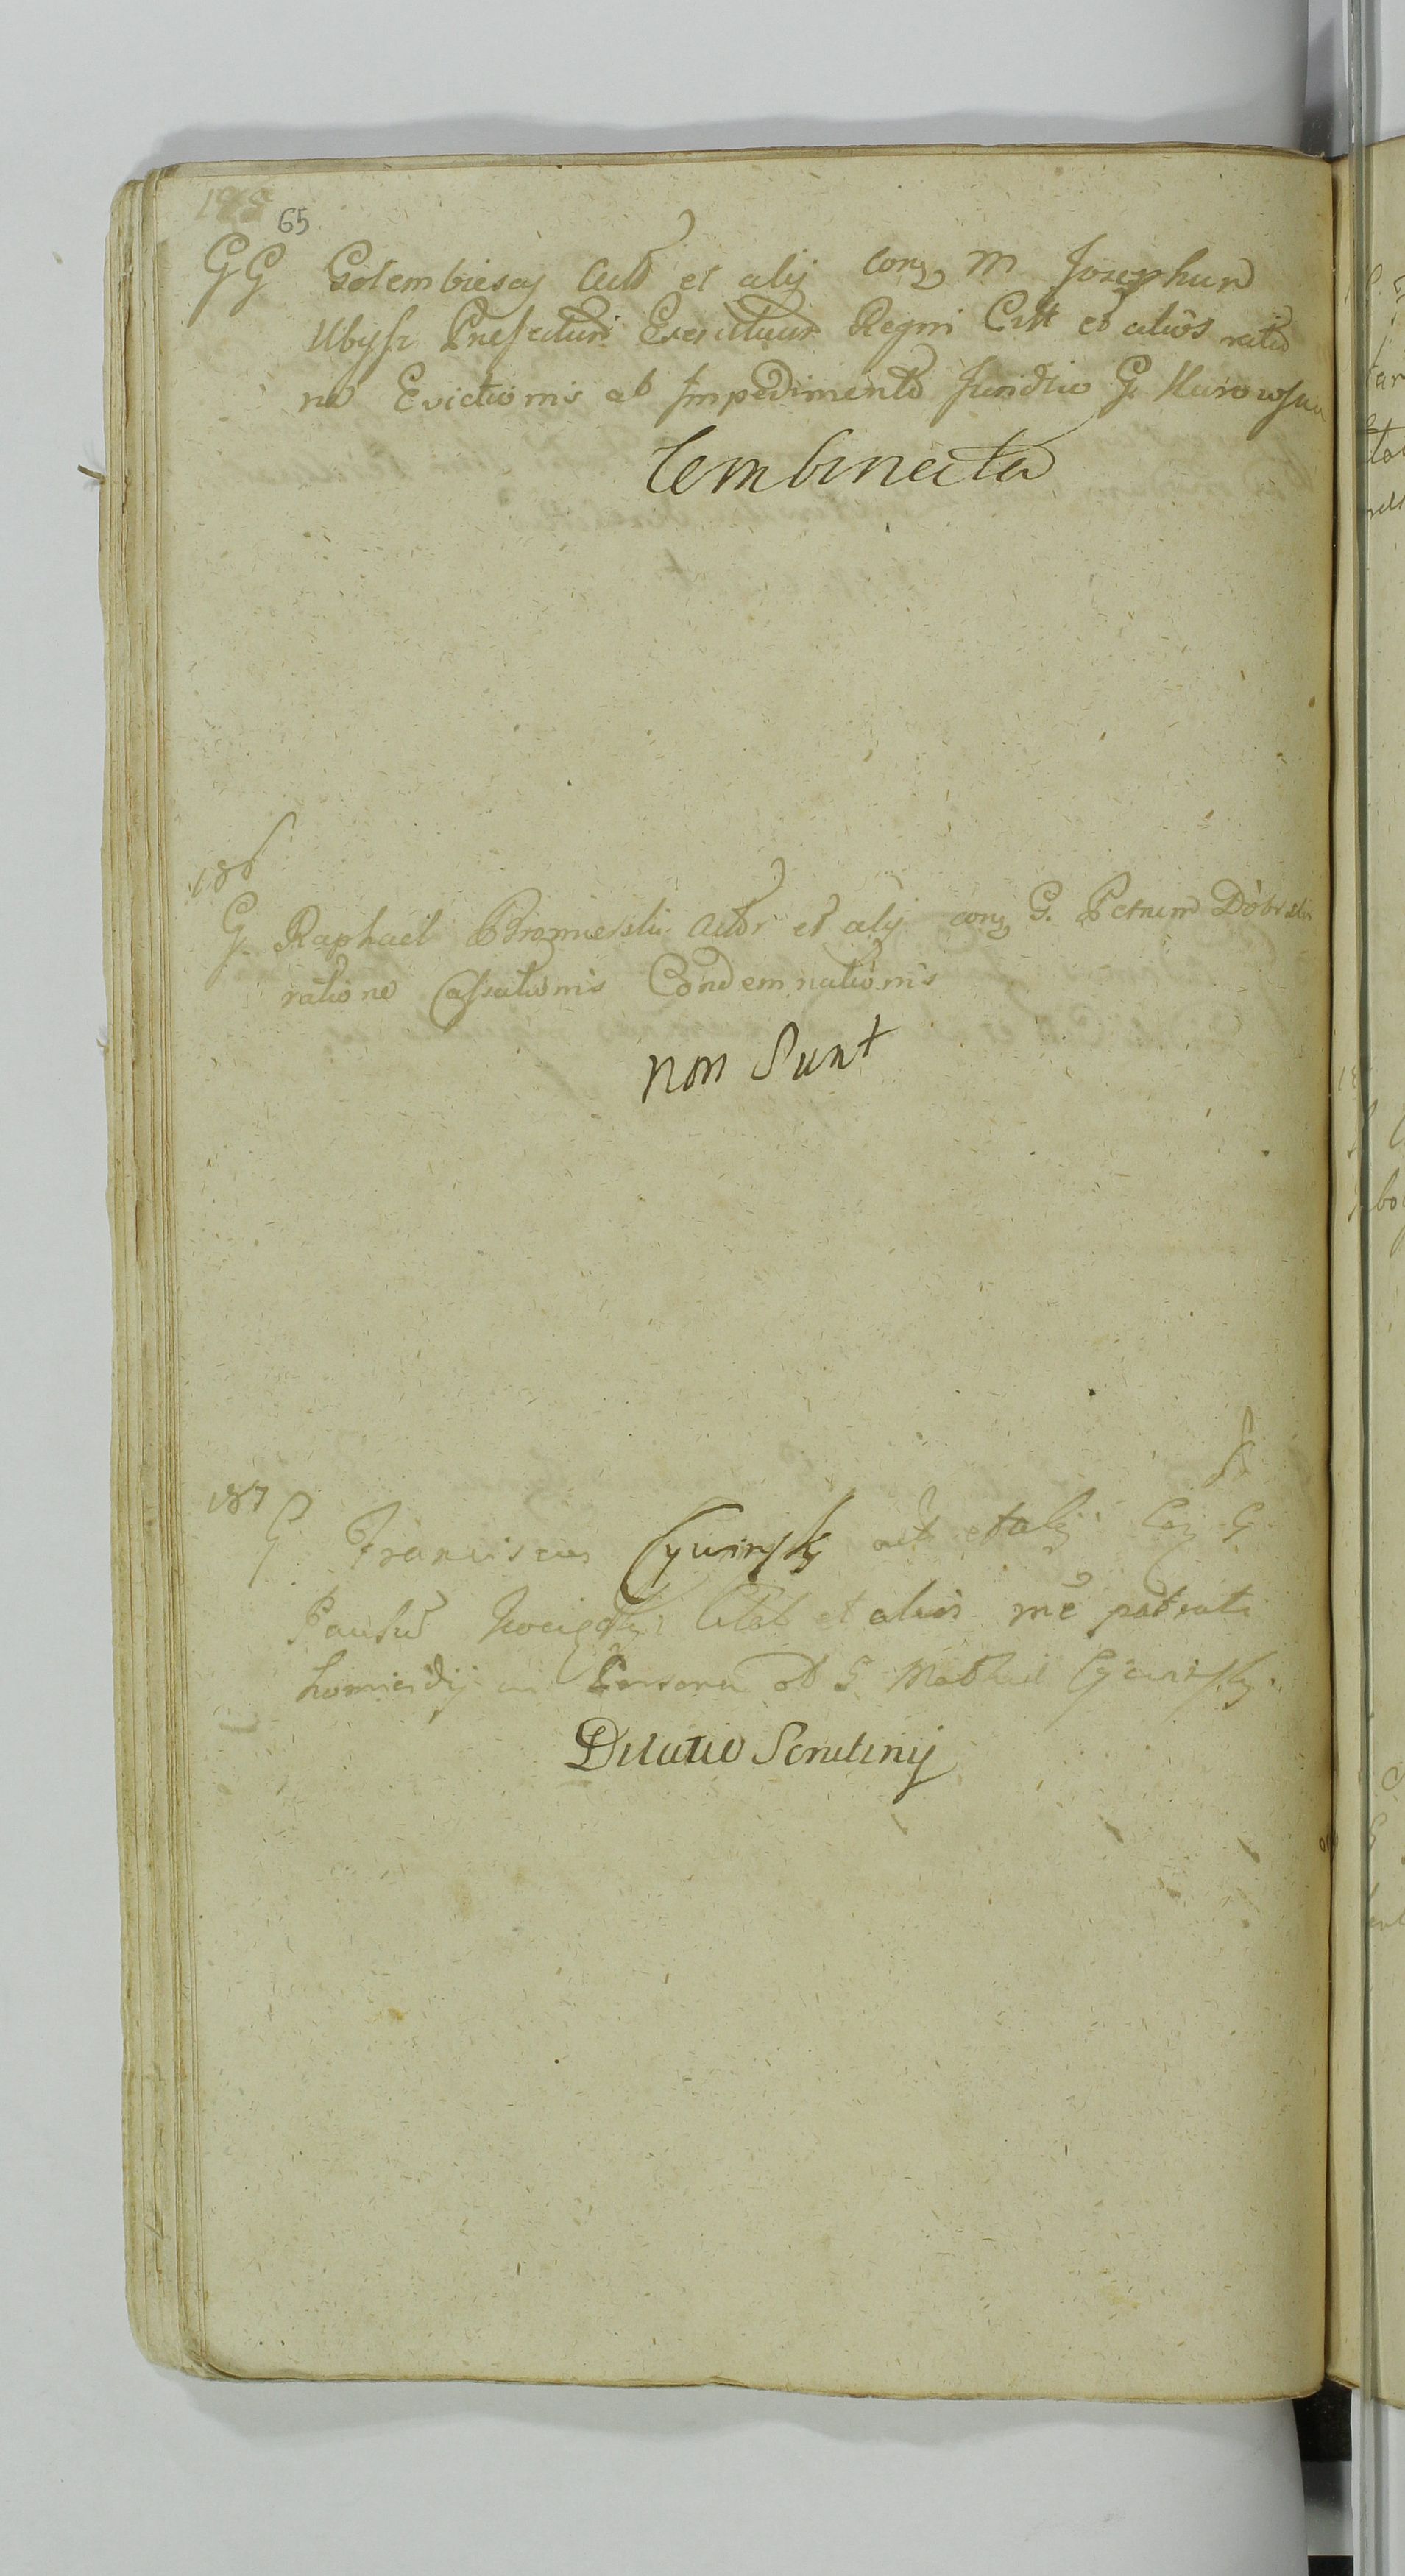 185 65
GG Golembiescy Actō et alij conz M Josephum
Ubysz Præfectum Exercituum Regni Citt et alios ratio
ne Evictionis ab Impedimento Juridico G Kurowski
Combinata
186
G. Raphael actor et alij conz G. Petrum Dobrski
ratione Cassationis Condemnationis
non Sunt
187
G Franciscus Cywinsky act et alij Conz G
Paulū Citat et alios rñe patrati
homicidij in Persona G Cywinsky
Dilatio Scrutinij